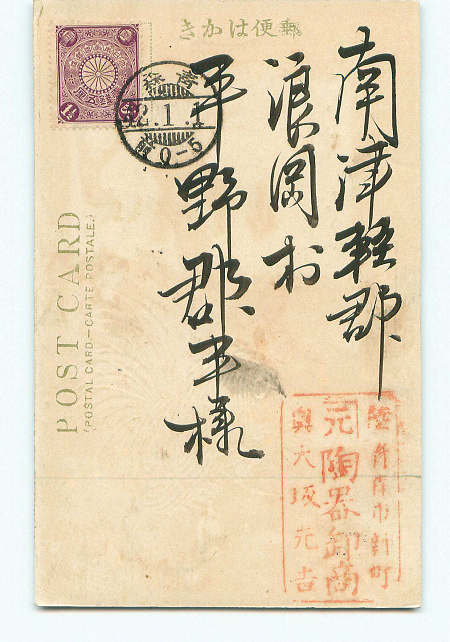 郵便はかき
南津軽郡
浪岡村
平野郡平様
POST CARD
(POSTAL CARD—CARTE POSTALE.)
青森
42.1.1
前0-5
青森市新町
元陶器卸商
大坂元吉